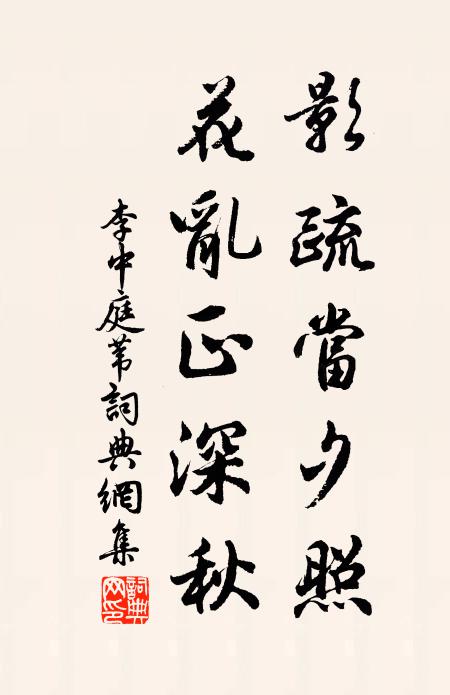 影疏當夕照
花亂正深秋
李中庭苇詞典網集
詞典網印